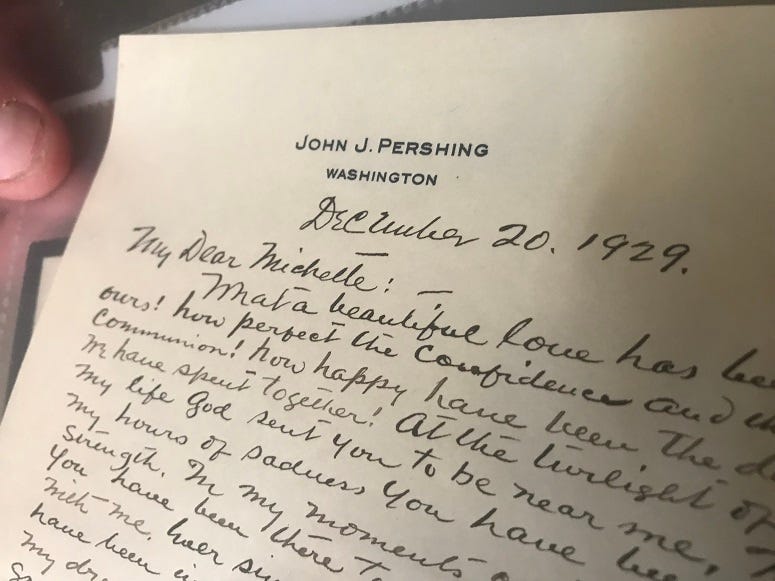 JOHN J. PERSHING
WASHINGTON
December 20. 1929.
My Dear Michette: —
What a beautiful love has
ours! how perfect the confidence and
communion! how happy have been the
we have spent together! At the twilight of
my life God sent you to be near me,
my hours of sadness you have
strength. In my moments
you have been there
with me.
have been
my